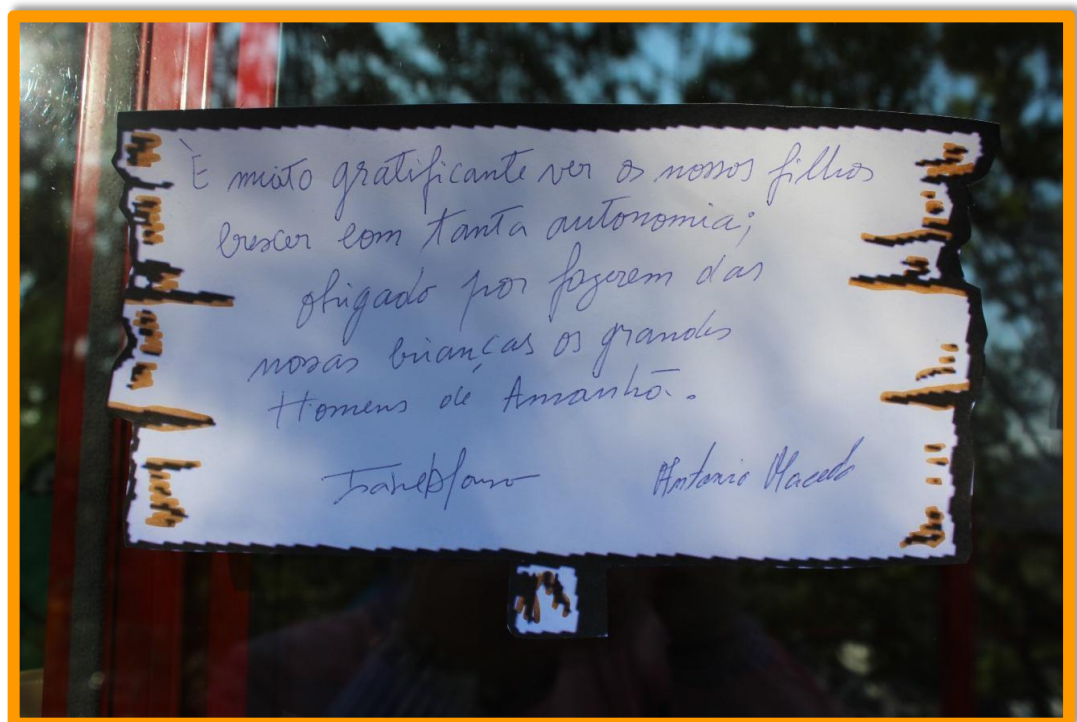 È muito gratificante ver os nossos filhos
crescer com tanta autonomia;
obrigado por fazerem das
nossas crianças os grandes
Homens de Amanhã.
Antonio Macedo